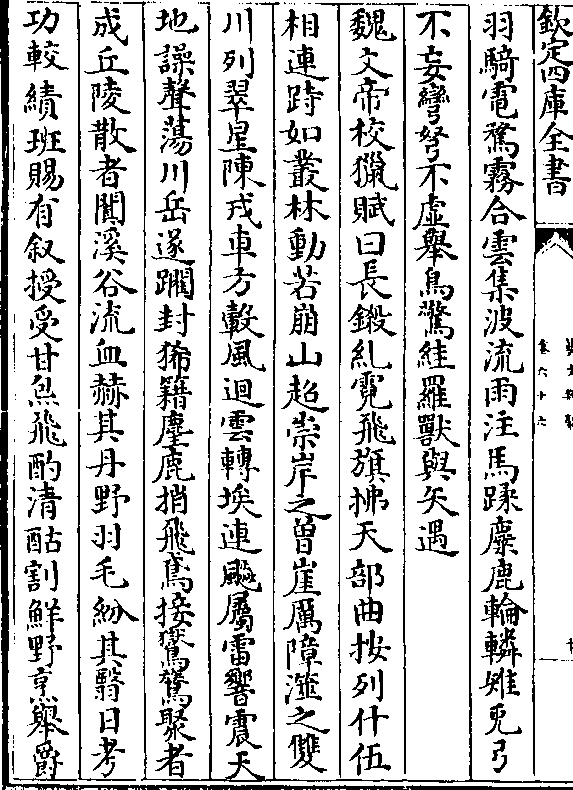 欽定四庫全書
羽騎電騖霧合雲集波流雨注馬蹂麋鹿輪轔雉兎弓
不妄彎弩不虛舉鳥驚絓羅獸與矢遇
魏文帝校獵賦曰長鎩糺霓飛旗拂天部曲按列什伍
相連跱如叢林動若崩山超崇岸之曾崖厲障澨之雙
川列翠星陳戎車方轂風迴雲轉埃連飈屬雷響震天
地譟聲蕩川岳遂躪封狶籍麈鹿捎飛鳶接鸑鷟聚者
成丘陵散者闐溪谷流血赫其丹野羽毛紛其翳日考
功較績班賜有叙授受甘炰飛酌清酤割鮮野烹舉爵